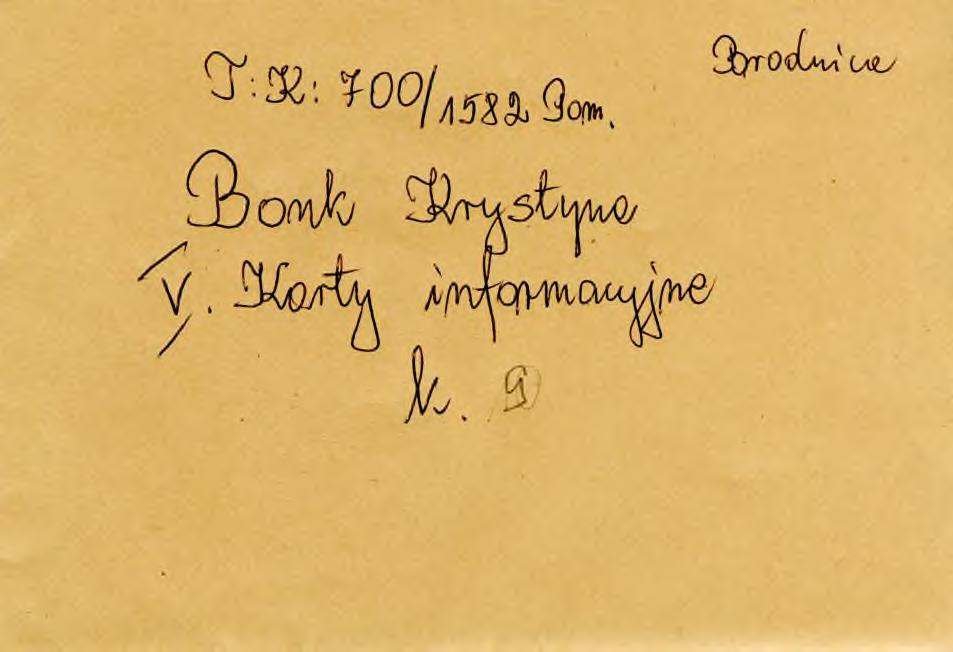 Brodnica
T:K: 700/1582 Pom.
Bonk Krystyna
V. Karty informacyjne
k. 9